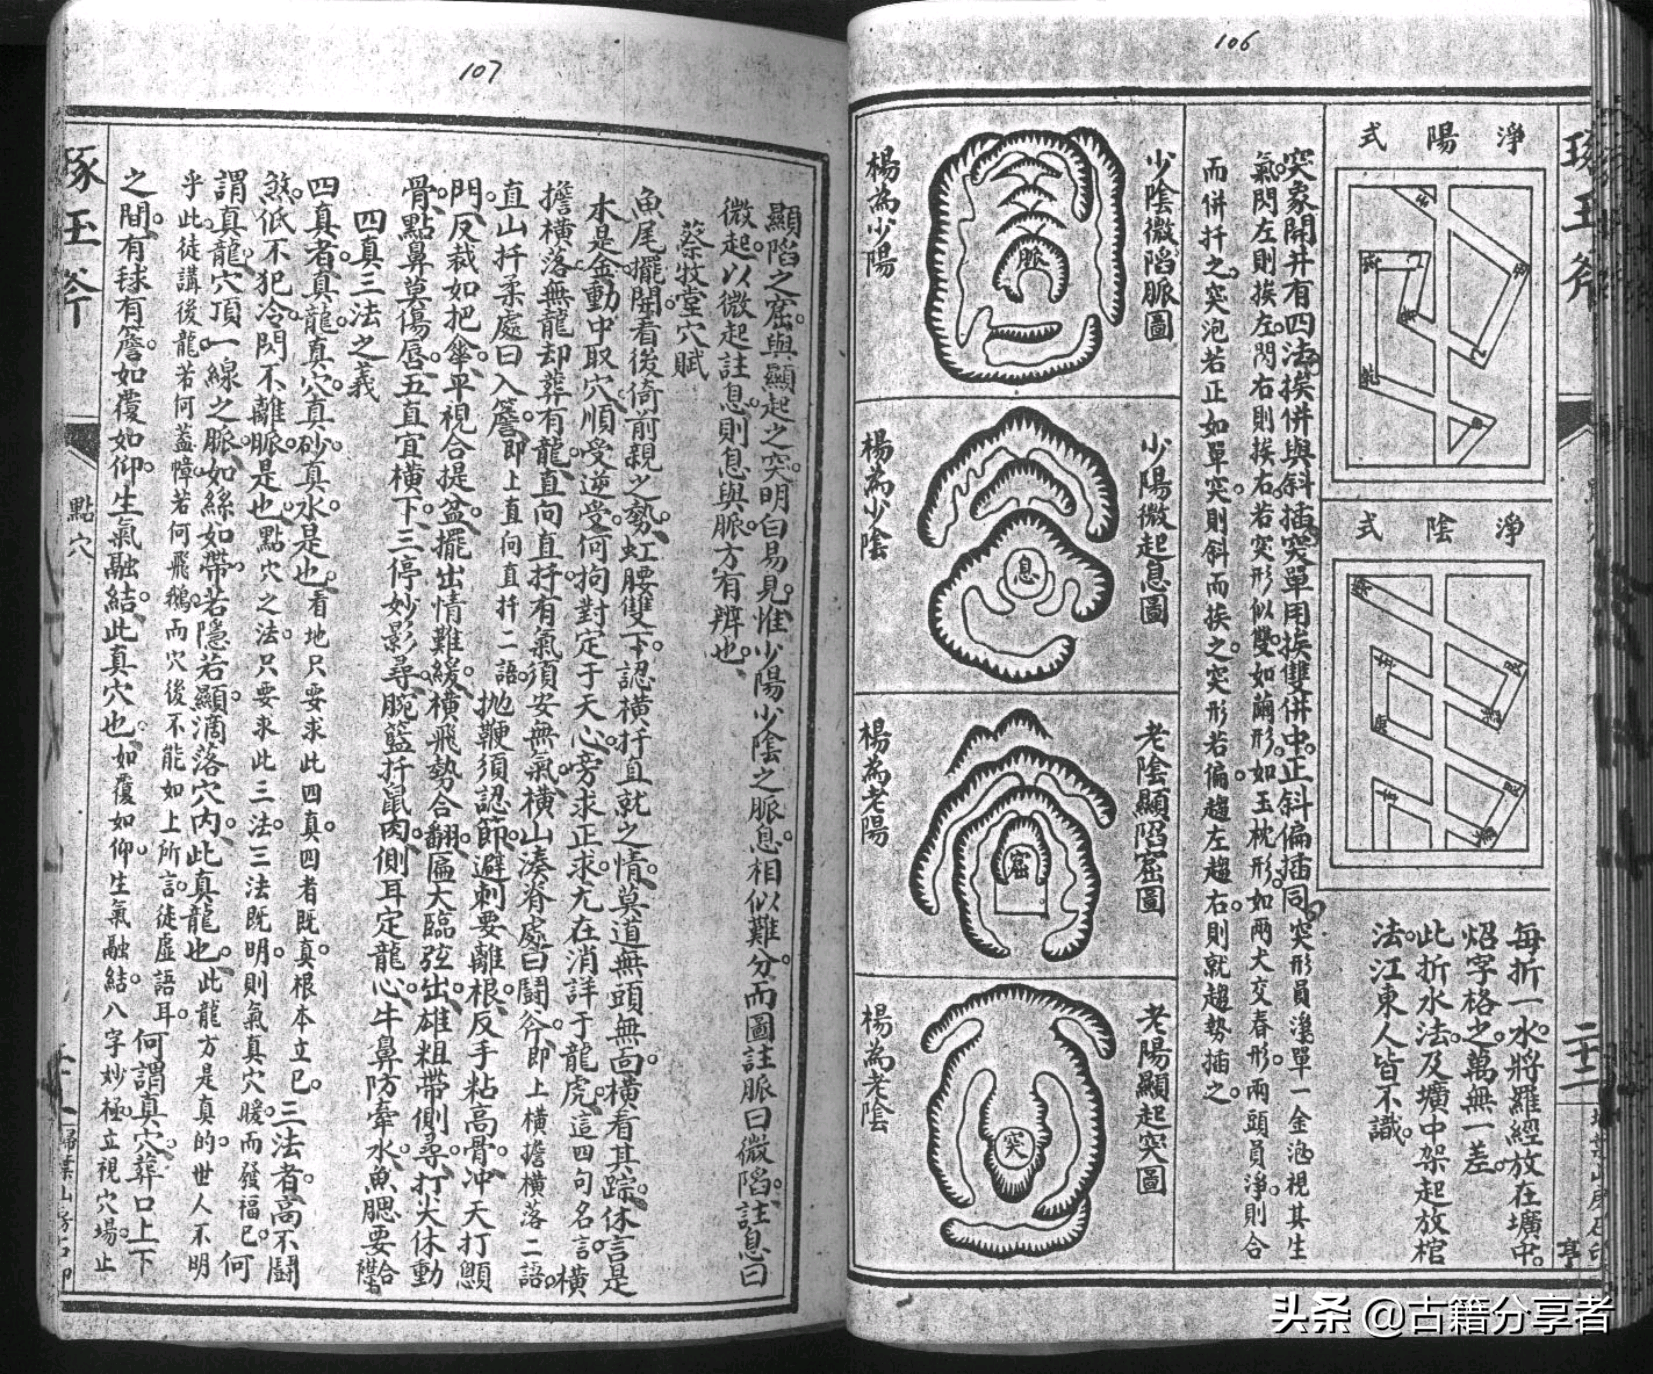 106
淨陽式
淨陰式
每折一水將羅經放在壙中
炤字格之萬無一差
此折水法及壙中架起放棺
法江東人皆不識
突象開井有四法挨併與斜插突單用挨雙併中正斜偏插同突形員淨單一金泡視其生
氣閃左則挨左閃右則挨右若突形似雙如繭形如玉枕形如兩犬交春形兩頭員淨則合
而併扦之突泡若正如單突則斜而挨之突形若偏趨左趨右則就趨勢插之
少陰微陷脈圖
脈
楊為少陽
少陽微起息圖
息
楊為少陰
老陰顯陷窟圖
窟
楊為老陽
老陽顯起突圖
突
楊為老陰
107
顯陷之窟與顯起之突明白易見惟少陽少陰之脈息相似難分而圖註脈曰微陷註息曰
微起以微起註息則息與脈方有辨也
蔡牧堂穴賦
魚尾擺開看後倚前親之勢虹腰雙下認橫扦直就之情莫道無頭無面橫看其踪休言是
木是金動中取穴順受逆受何拘對定于天心旁求正求尤在消詳于龍虎這四句名言橫
擔橫落無龍却葬有龍直向直扦有氣須安無氣橫山湊脊處曰鬪斧即上橫擔橫落二語
直山扦柔處曰入簷即上直向直扦二語拋鞭須認節避刺要離根反手粘高骨冲天打顖
門反裁如把傘平視合提盆擺出情難緩橫飛勢合翻匾大臨弦出雄粗帶側尋打尖休動
骨點鼻莫傷唇五直宜橫下三停妙影尋腕籃扦鼠肉側耳定龍心牛鼻防牽水魚腮要合襟
四真三法之義
四真者真龍真穴真砂真水是也看地只要求此四真四者既真根本立巳三法者高不鬪
煞低不犯冷閃不離脈是也點穴之法只要求此三法三法既明則氣真穴暖而發福巳何
謂真龍穴頂一線之脈如絲如帶若隱若顯滴落穴內此真龍也此龍方是真的世人不明
乎此徒講後龍若何蓋幛若何飛鵝而穴後不能如上所言徒虛語耳何謂真穴葬口上下
之間有毬有簷如覆如仰生氣融結此真穴也如覆如仰生氣融結八字妙極立視穴場止
點穴
头条 @古籍分享者